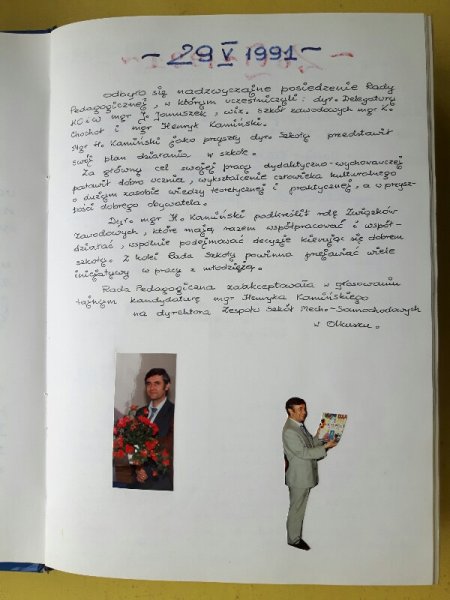 ~ 29 V 1991 ~
odbyło się nadzwyczajne posiedzenie Rady
Pedagogicznej, w którym uczestniczyli: dyr. Delegatury
KOiW mgr J. Januszek, wiz. szkół zawodowych mgr K.
Chochoł i mgr Henryk Kamiński.
Mgr H. Kamiński jako przyszły dyr. Szkoły przedstawił
swój plan działania w szkole.
Za główny cel swojej pracy dydaktyczno-wychowawczej
postawił dobro ucznia, wykształcenie człowieka kulturalnego
o dużym zasobie wiedzy teoretycznej i praktycznej, a w przysz-
łości dobrego obywatela.
Dyr. mgr H. Kamiński podkreślił rolę Związków
Zawodowych, które mają razem współpracować i współ-
działać, wspólnie podejmować decyzje kierując się dobrem
szkoły. Z kolei Rada Szkoły powinna przejawiać wiele
inicjatywy w pracy z młodzieżą.
Rada Pedagogiczna zaakceptowała w głosowaniu
tajnym kandydaturę mgr Henryka Kamińskiego
na dyrektora Zespołu Szkół Mech.-Samochodowych
w Olkuszu.